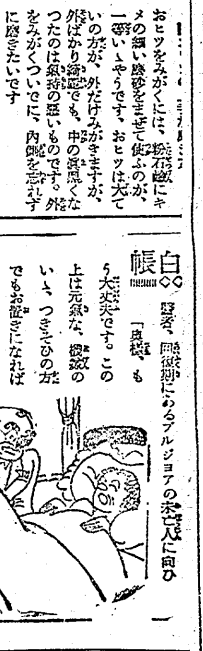 おヒツをみがくには、粉石鹸にキ
メの細い磨砂をまぜて使ふのが、
一番いゝやうです。おヒツは大て
いの方が、外だけみがきますが、
外ばかり綺麗でも、中の真黒くな
つたのは気持の悪いものです。外
をみがくついでに、内側を忘れず
に磨きたいです
白帳
醫者、回復期にあるブルジョアの未亡人に向ひ
「奥様、も
う大丈夫です。この
上は元気な、機敏の
いゝ、つきそひの方
でもお置きになれば